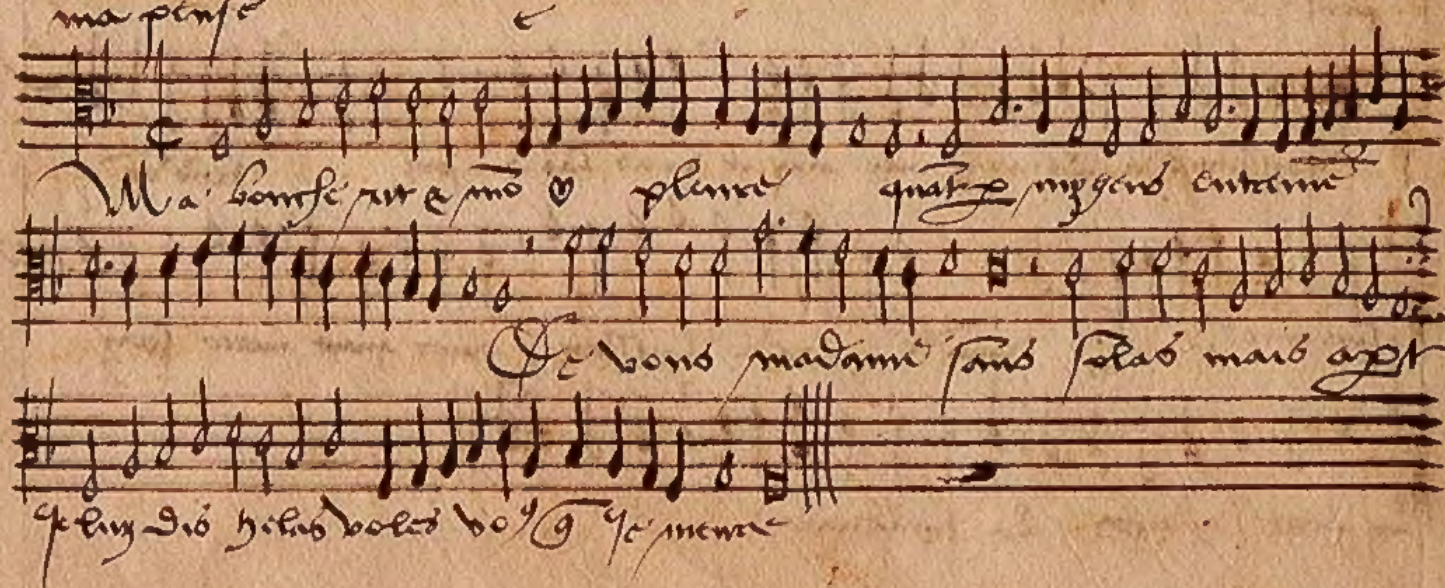 ma pense e
Ma bouche rit & mō pleure quāt entreme
De vous madame sans solas mais
luy dis helas voles vo9 q̄ Je meure